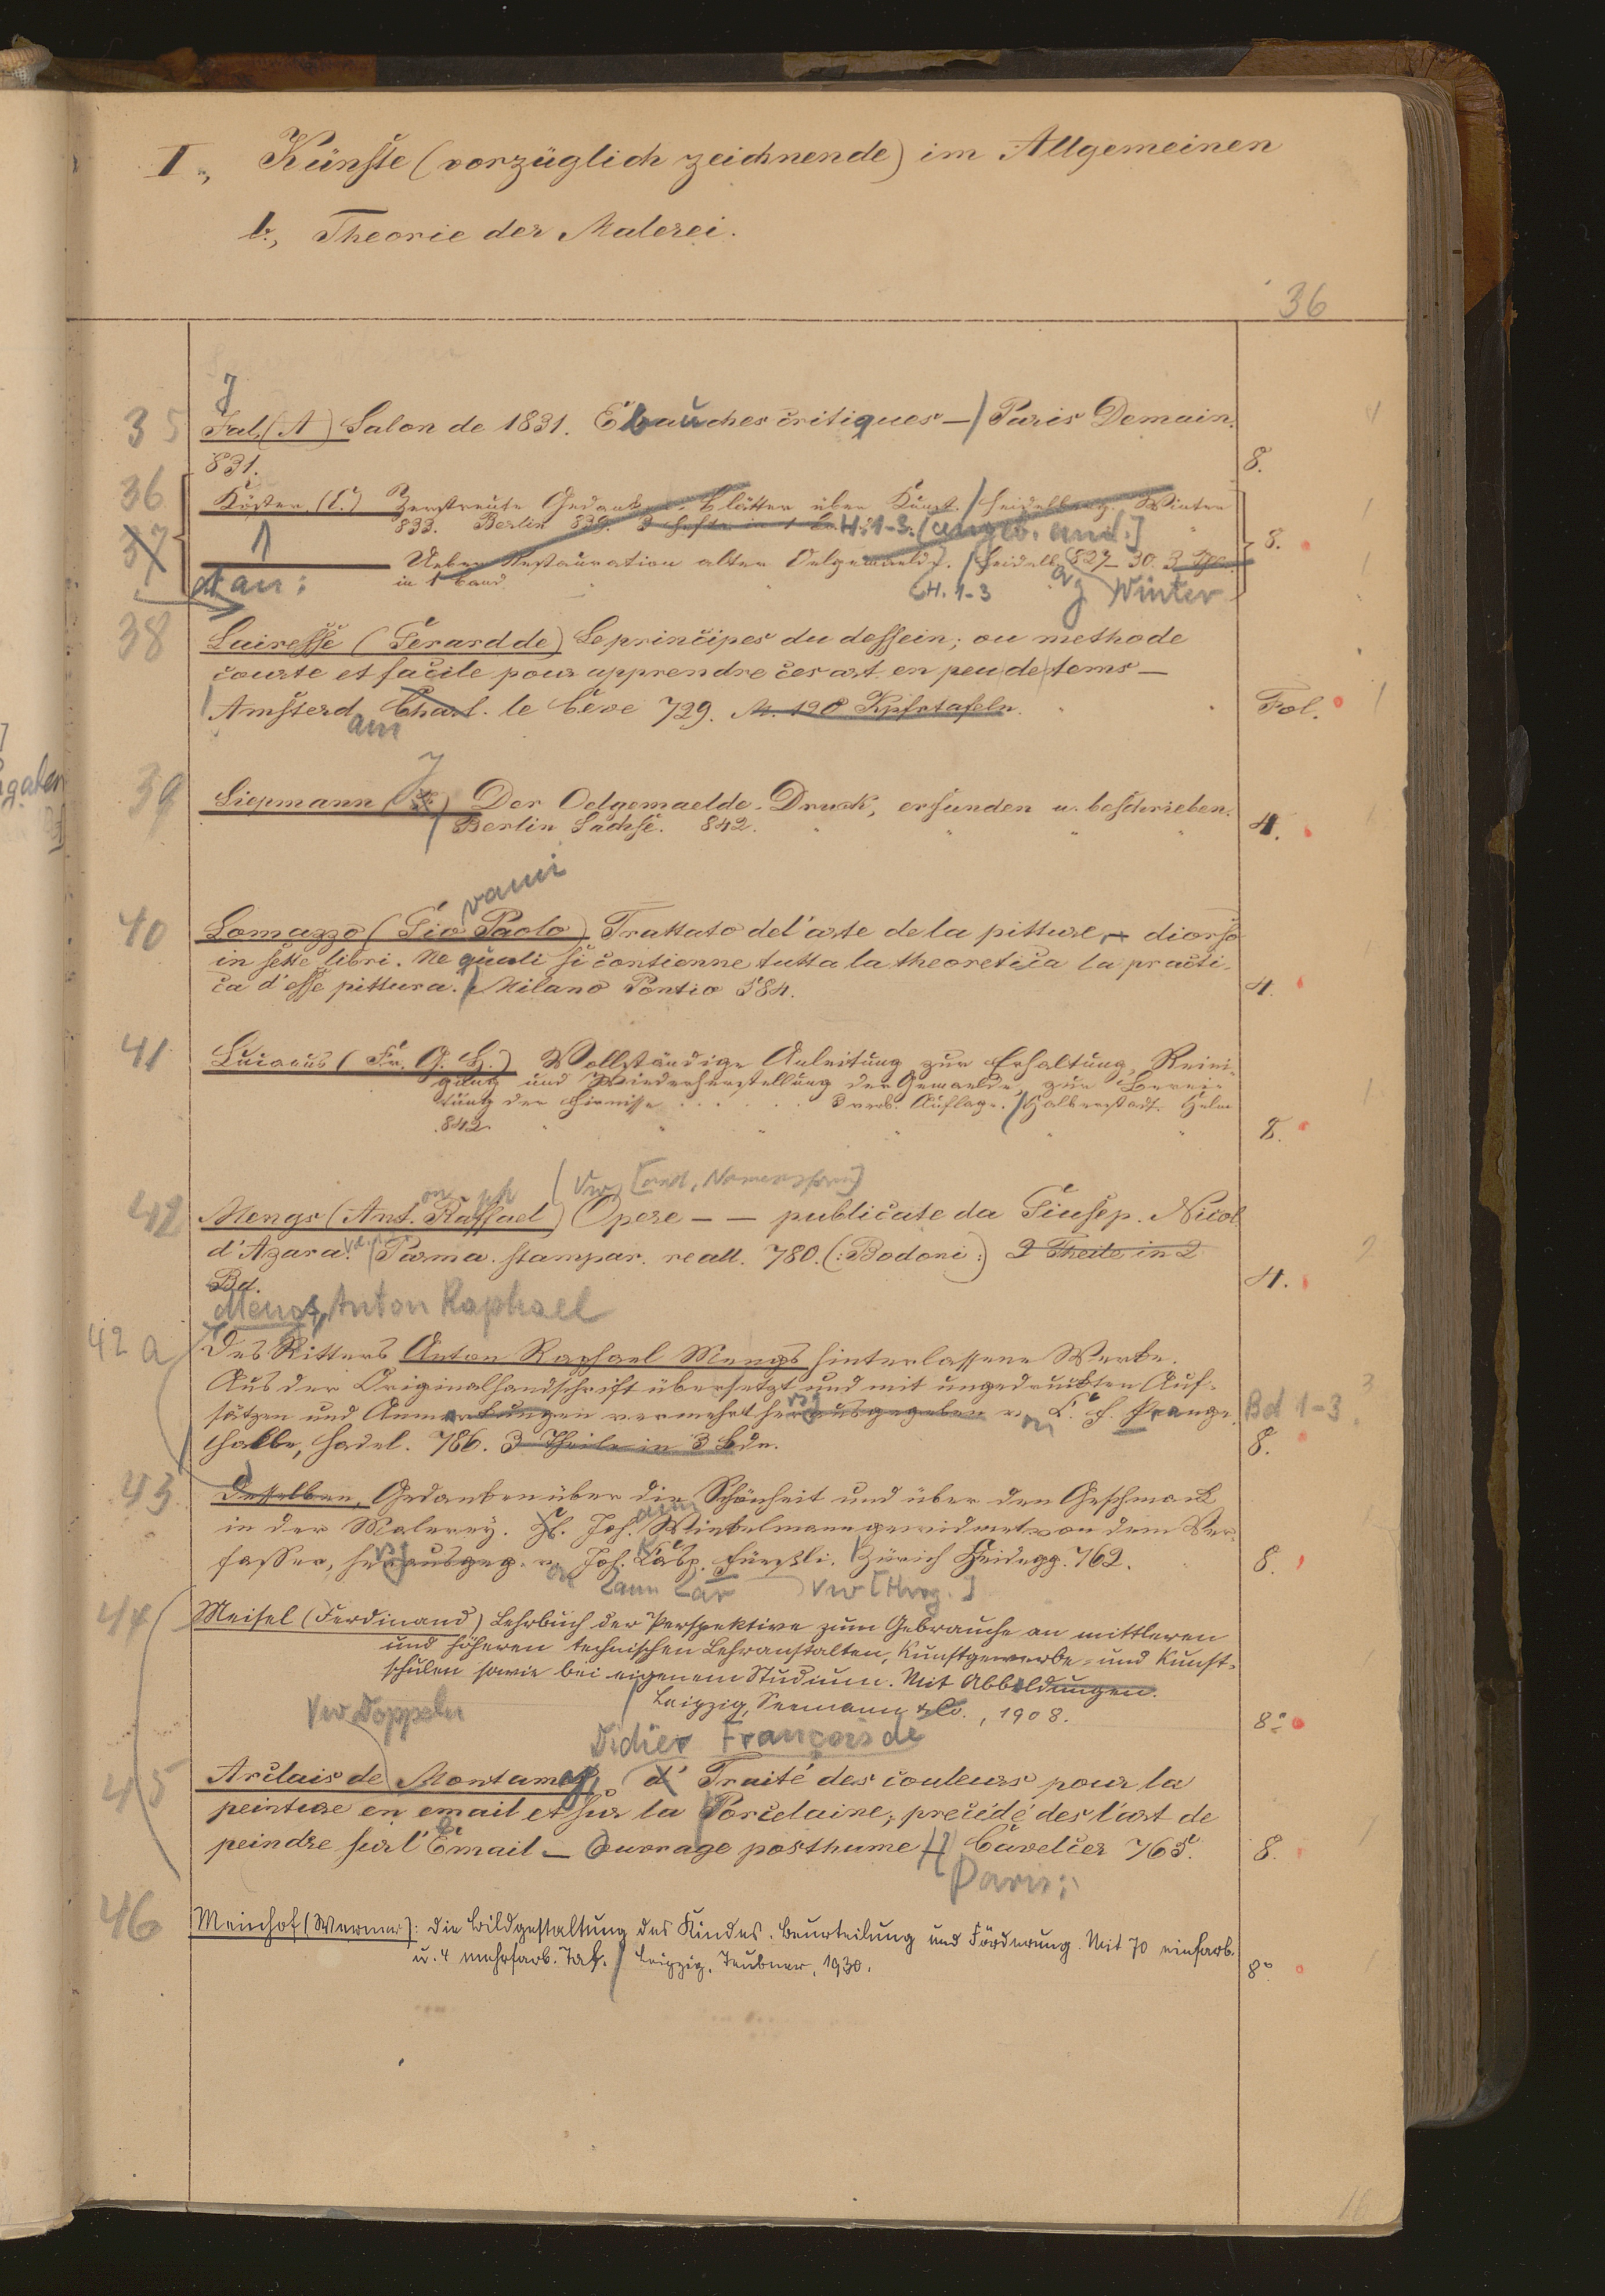 I., Künste (vorzüglich zeichnende) im Allgemeinen
b., Theorie der Malerei.
36
J
35 Jal, (A) Salon de 1831. Ebauches critiques —/ Paris Demain.
831. 8.
36 Köster, (C.) Zerstreute Gedank. Blätter über Kunst. / Heidelberg. Winter
833. Berlin 839. 3 Hefte in 1 Bd. H. 1-3. [angeb. und.]
37 Ueber Restauration alter Oelgemaelde. / Heidelb. 827-30. 3 8.
in 1 Band H. 1-3 Winter
an:
38 Lairesse (Gerard de) Le principes du dessein; ou methode
courte et facile pour apprendre ces art en peu de tems —
Amsterd. Charl. le Céne 729. M. 120 Kpfrtafeln. Fol.
am
J
39 Liepmann Der Oelgemaelde-Druck, erfunden u. beschrieben.
Berlin Sachse. 842. 4.
vanni
40 Lomazzo (Gio Paolo) Trattato del'arte de la pitture — diorso
in sette libri. Ne quali si contienne tutta la theoretica la practi-
ca d'esse pittura. / Milano Pontio 584. 4.
41 Lucanus (Fr. G. H.) Vollständige Anleitung zur Erhaltung, Reini-
gung und Wiederherstellung der Gemaelde, zur Berei-
tung der Firnisse . . . . . 3 verb. Auflage. / Halberstadt. Helm
842. 8.
on ph Vw [and. Namensform]
42 Mengs (Ant. Raffael) Opere — — publicate da Giusep. Nicol
d'Azara. Parma. stampar. reall. 780. (:Bodoni:) 2 Theile in 2
Bd. 4.
Mengs, Anton Raphael
42 a Des Ritters Anton Raphael Mengs hinterlassene Werke.
Aus der Originalhandschrift übersetzt und mit ungedruckten Auf-
sätzen und Anmerkungen vermehrt herausgegeben v. C. F. Prange. Bd 1-3.
Halle, Hadel. 786. 3 Theile in 3 Bde. 8.
43 Desselben, Gedanken über die Schönheit und über den Geschmack
in der Malerey. H. Joh. Winkelmann gewidmet von dem Ver-
fasser, herausgeg. v. Joh. Casp. Füeßli. Zürich Heidegg. 762. 8.
Vw [Hrsg.]
44 Meisel (Ferdinand) Lehrbuch der Perspektive zum Gebrauche an mittleren
und höheren technischen Lehranstalten, Kunstgewerbe- und Kunst-
schulen sowie bei eigenem Studium. Mit Abbildungen.
Leipzig, Seemann & Co., 1908. 8°
Vw Doppeln
Didier François de
45 Arclais de Montamy, d' Traité des couleurs pour la
peinture en email et sur la Porcelaine; precédé des l'art de
peindre sur l'Email — Ouvrage posthume / Cavelier 765. 8.
Paris:
46 Meinhof (Werner): Die Bildgestaltung des Kindes. Beurteilung und Förderung. Mit 70 einfarb.
u. 4 mehrfarb. Taf. / Leipzig, Teubner, 1930. 8°
16